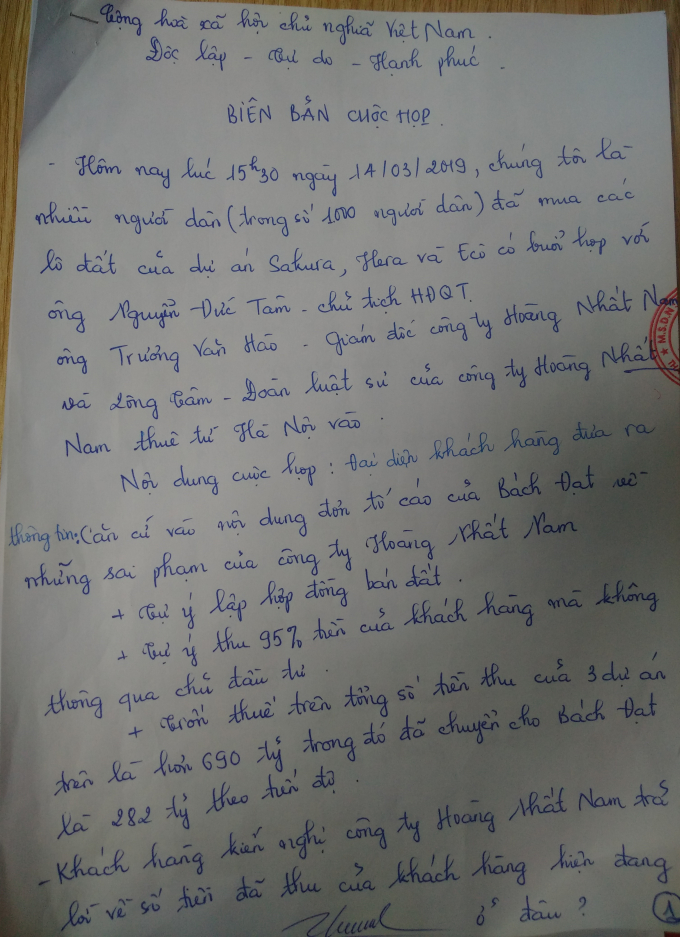 Cộng hoà xã hội chủ nghĩa Việt Nam.
Độc lập - Tự do - Hạnh phúc.
BIÊN BẢN CUỘC HỌP.
- Hôm nay lúc 15h30 ngày 14/03/2019, chúng tôi là
nhiều người dân (trong số 1000 người dân) đã mua các
lô đất của dự án Sakura, Hera và Eco có buổi họp với
ông Nguyễn Đức Tâm - chủ tịch HĐQT.
ông Trương Văn Hào - giám đốc công ty Hoàng Nhất Nam
và Lông Tâm - Đoàn luật sư của công ty Hoàng Nhất
Nam thuê từ Hà Nội vào.
Nội dung cuộc họp: Đại diện khách hàng đưa ra
thông tin: Căn cứ vào nội dung đơn tố cáo của Bách Đạt về
những sai phạm của công ty Hoàng Nhất Nam
+ Tự ý lập hợp đồng bán đất.
+ Tự ý thu 95% tiền của khách hàng mà không
thông qua chủ đầu tư.
+ Trốn thuế trên tổng số tiền thu của 3 dự án
trên là hơn 690 tỷ trong đó đã chuyển cho Bách Đạt
là 282 tỷ theo tiến độ.
- Khách hàng kiến nghị công ty Hoàng Nhất Nam trả
lời về số tiền đã thu của khách hàng hiện đang
ở đâu?
1
M.S.D.N